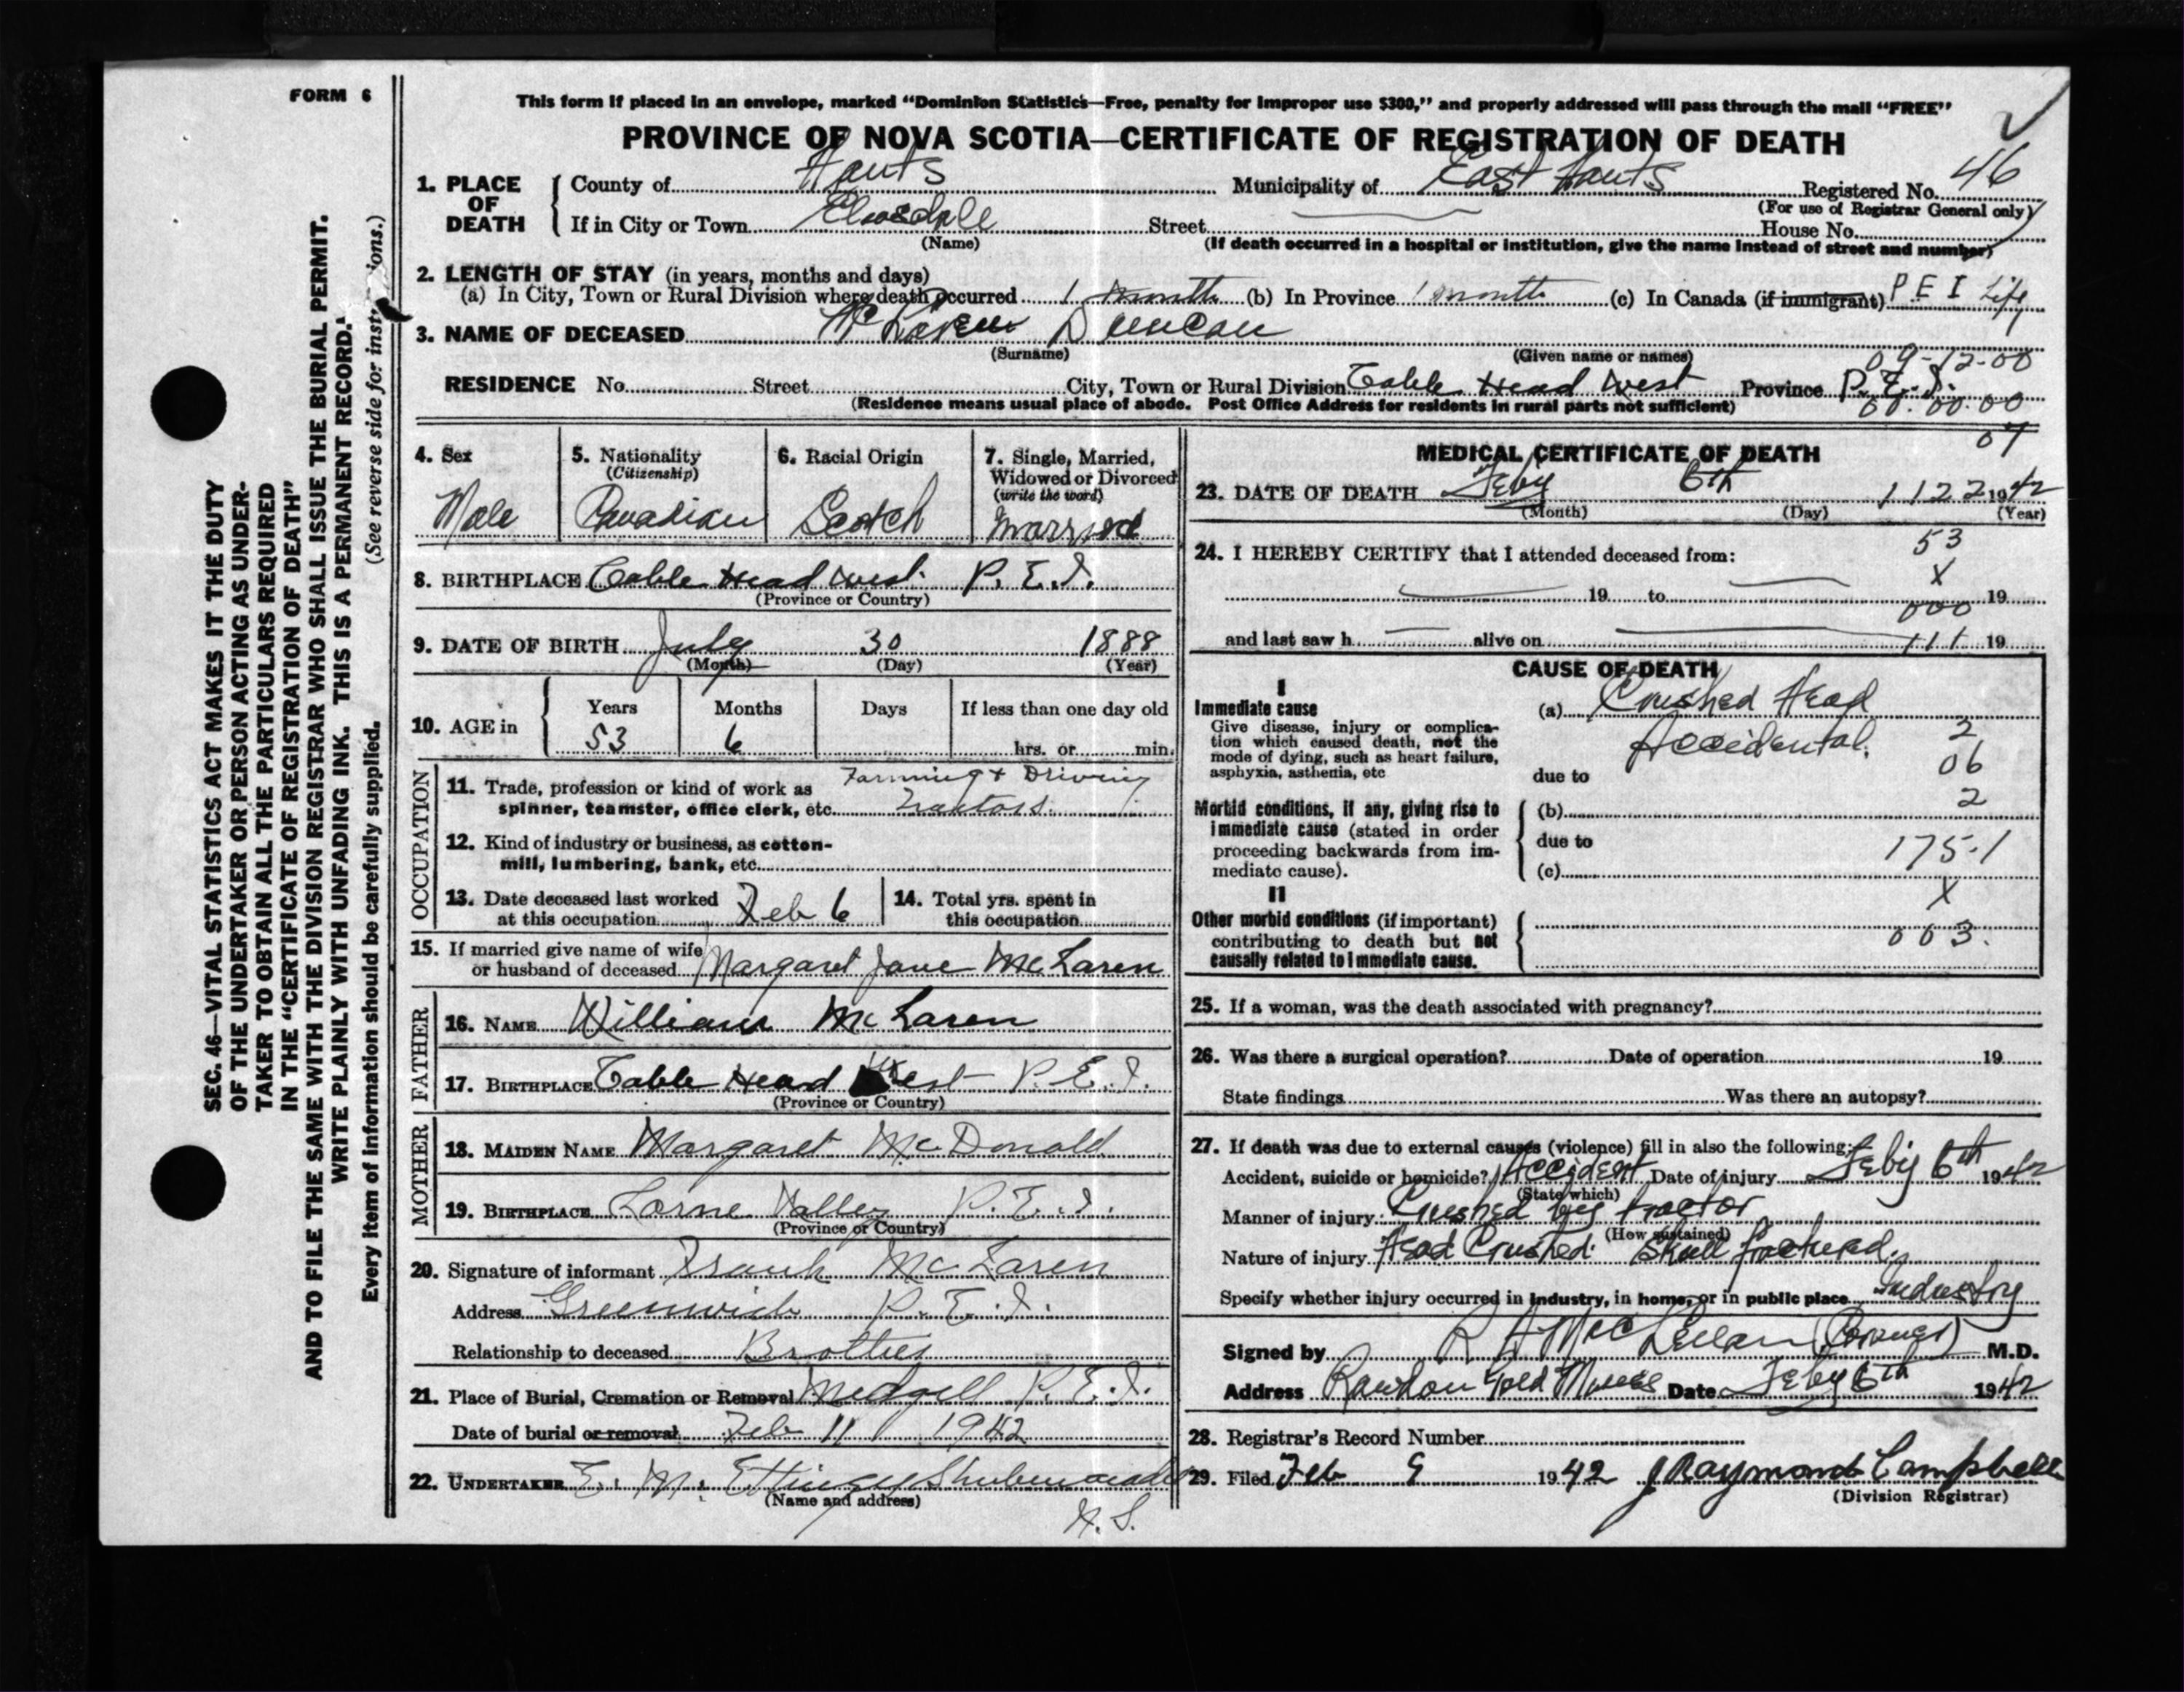 FORM 6
This form if placed in an envelope, marked "Dominion Statistics—Free, penalty for improper use $300," and properly addressed will pass through the mail "FREE"
PROVINCE OF NOVA SCOTIA—CERTIFICATE OF REGISTRATION OF DEATH
1. PLACE OF DEATH
County of Hants Municipality of East Hants Registered No. 46
(For use of Registrar General only)
If in City or Town Street House No.
(Name) (If death occurred in a hospital or institution, give the name instead of street and number)
2. LENGTH OF STAY (in years, months and days)
(a) In City, Town or Rural Division where death occurred 1 month (b) In Province 1 month (c) In Canada (if immigrant) P E I Life
3. NAME OF DECEASED McLaren Duncan
(Surname) (Given name or names)
09-12-00
RESIDENCE No. Street City, Town or Rural Division Cable Head West Province P.E.I.
(Residence means usual place of abode. Post Office Address for residents in rural parts not sufficient)
00.00.00
07
4. Sex
Male
5. Nationality
(Citizenship)
Canadian
6. Racial Origin
Scotch
7. Single, Married, Widowed or Divorced
(write the word)
Married
8. BIRTHPLACE Cable Head West P.E.I.
(Province or Country)
9. DATE OF BIRTH July 30 1888
(Month) (Day) (Year)
10. AGE in
Years Months Days If less than one day old
53 6 hrs. or min.
OCCUPATION
11. Trade, profession or kind of work as Farming & Driving
spinner, teamster, office clerk, etc. Tractors.
12. Kind of industry or business, as cotton-
mill, lumbering, bank, etc.
13. Date deceased last worked
at this occupation Feb 6
14. Total yrs. spent in
this occupation
15. If married give name of wife
or husband of deceased Margaret Jane McLaren
FATHER
16. NAME William McLaren
17. BIRTHPLACE Cable Head West P.E.I.
(Province or Country)
MOTHER
18. MAIDEN NAME Margaret McDonald
19. BIRTHPLACE Lorne Valley P.E.I.
(Province or Country)
20. Signature of informant Frank McLaren
Address Greenwich P.E.I.
Relationship to deceased Brother
21. Place of Burial, Cremation or Removal Midgell P.E.I.
Date of burial or removal Feb 11 1942
22. UNDERTAKER E. M. Ettinger Shubenacadie
(Name and address)
N.S.
MEDICAL CERTIFICATE OF DEATH
23. DATE OF DEATH Feby 6th 1122 1942
(Month) (Day) (Year)
24. I HEREBY CERTIFY that I attended deceased from:
53
X
19 to 19
000
and last saw h alive on 111 19
CAUSE OF DEATH
I
Immediate cause
Give disease, injury or complica-
tion which caused death, not the
mode of dying, such as heart failure,
asphyxia, asthenia, etc
(a) Crushed Head
Accidental.
2
06
due to
2
Morbid conditions, if any, giving rise to
immediate cause (stated in order
proceeding backwards from im-
mediate cause).
(b)
due to
175.1
(c)
X
II
Other morbid conditions (if important)
contributing to death but not
causally related to immediate cause.
003.
25. If a woman, was the death associated with pregnancy?
26. Was there a surgical operation? Date of operation 19
State findings Was there an autopsy?
27. If death was due to external causes (violence) fill in also the following:
Accident, suicide or homicide? Accident Date of injury Feby 6th 1942
(State which)
Manner of injury Crushed by tractor
(How sustained)
Nature of injury Head Crushed. Skull fractured.
Specify whether injury occurred in industry, in home, or in public place Industry
Signed by R A MacLellan (Coroner) M.D.
Address Rawdon Gold Mines Date Feby 6th 1942
28. Registrar's Record Number
29. Filed Feb 9 1942 J Raymond Campbell
(Division Registrar)
SEC. 46—VITAL STATISTICS ACT MAKES IT THE DUTY
OF THE UNDERTAKER OR PERSON ACTING AS UNDER-
TAKER TO OBTAIN ALL THE PARTICULARS REQUIRED
IN THE "CERTIFICATE OF REGISTRATION OF DEATH"
AND TO FILE THE SAME WITH THE DIVISION REGISTRAR WHO SHALL ISSUE THE BURIAL PERMIT.
WRITE PLAINLY WITH UNFADING INK. THIS IS A PERMANENT RECORD.
Every item of information should be carefully supplied. (See reverse side for inst ions.)